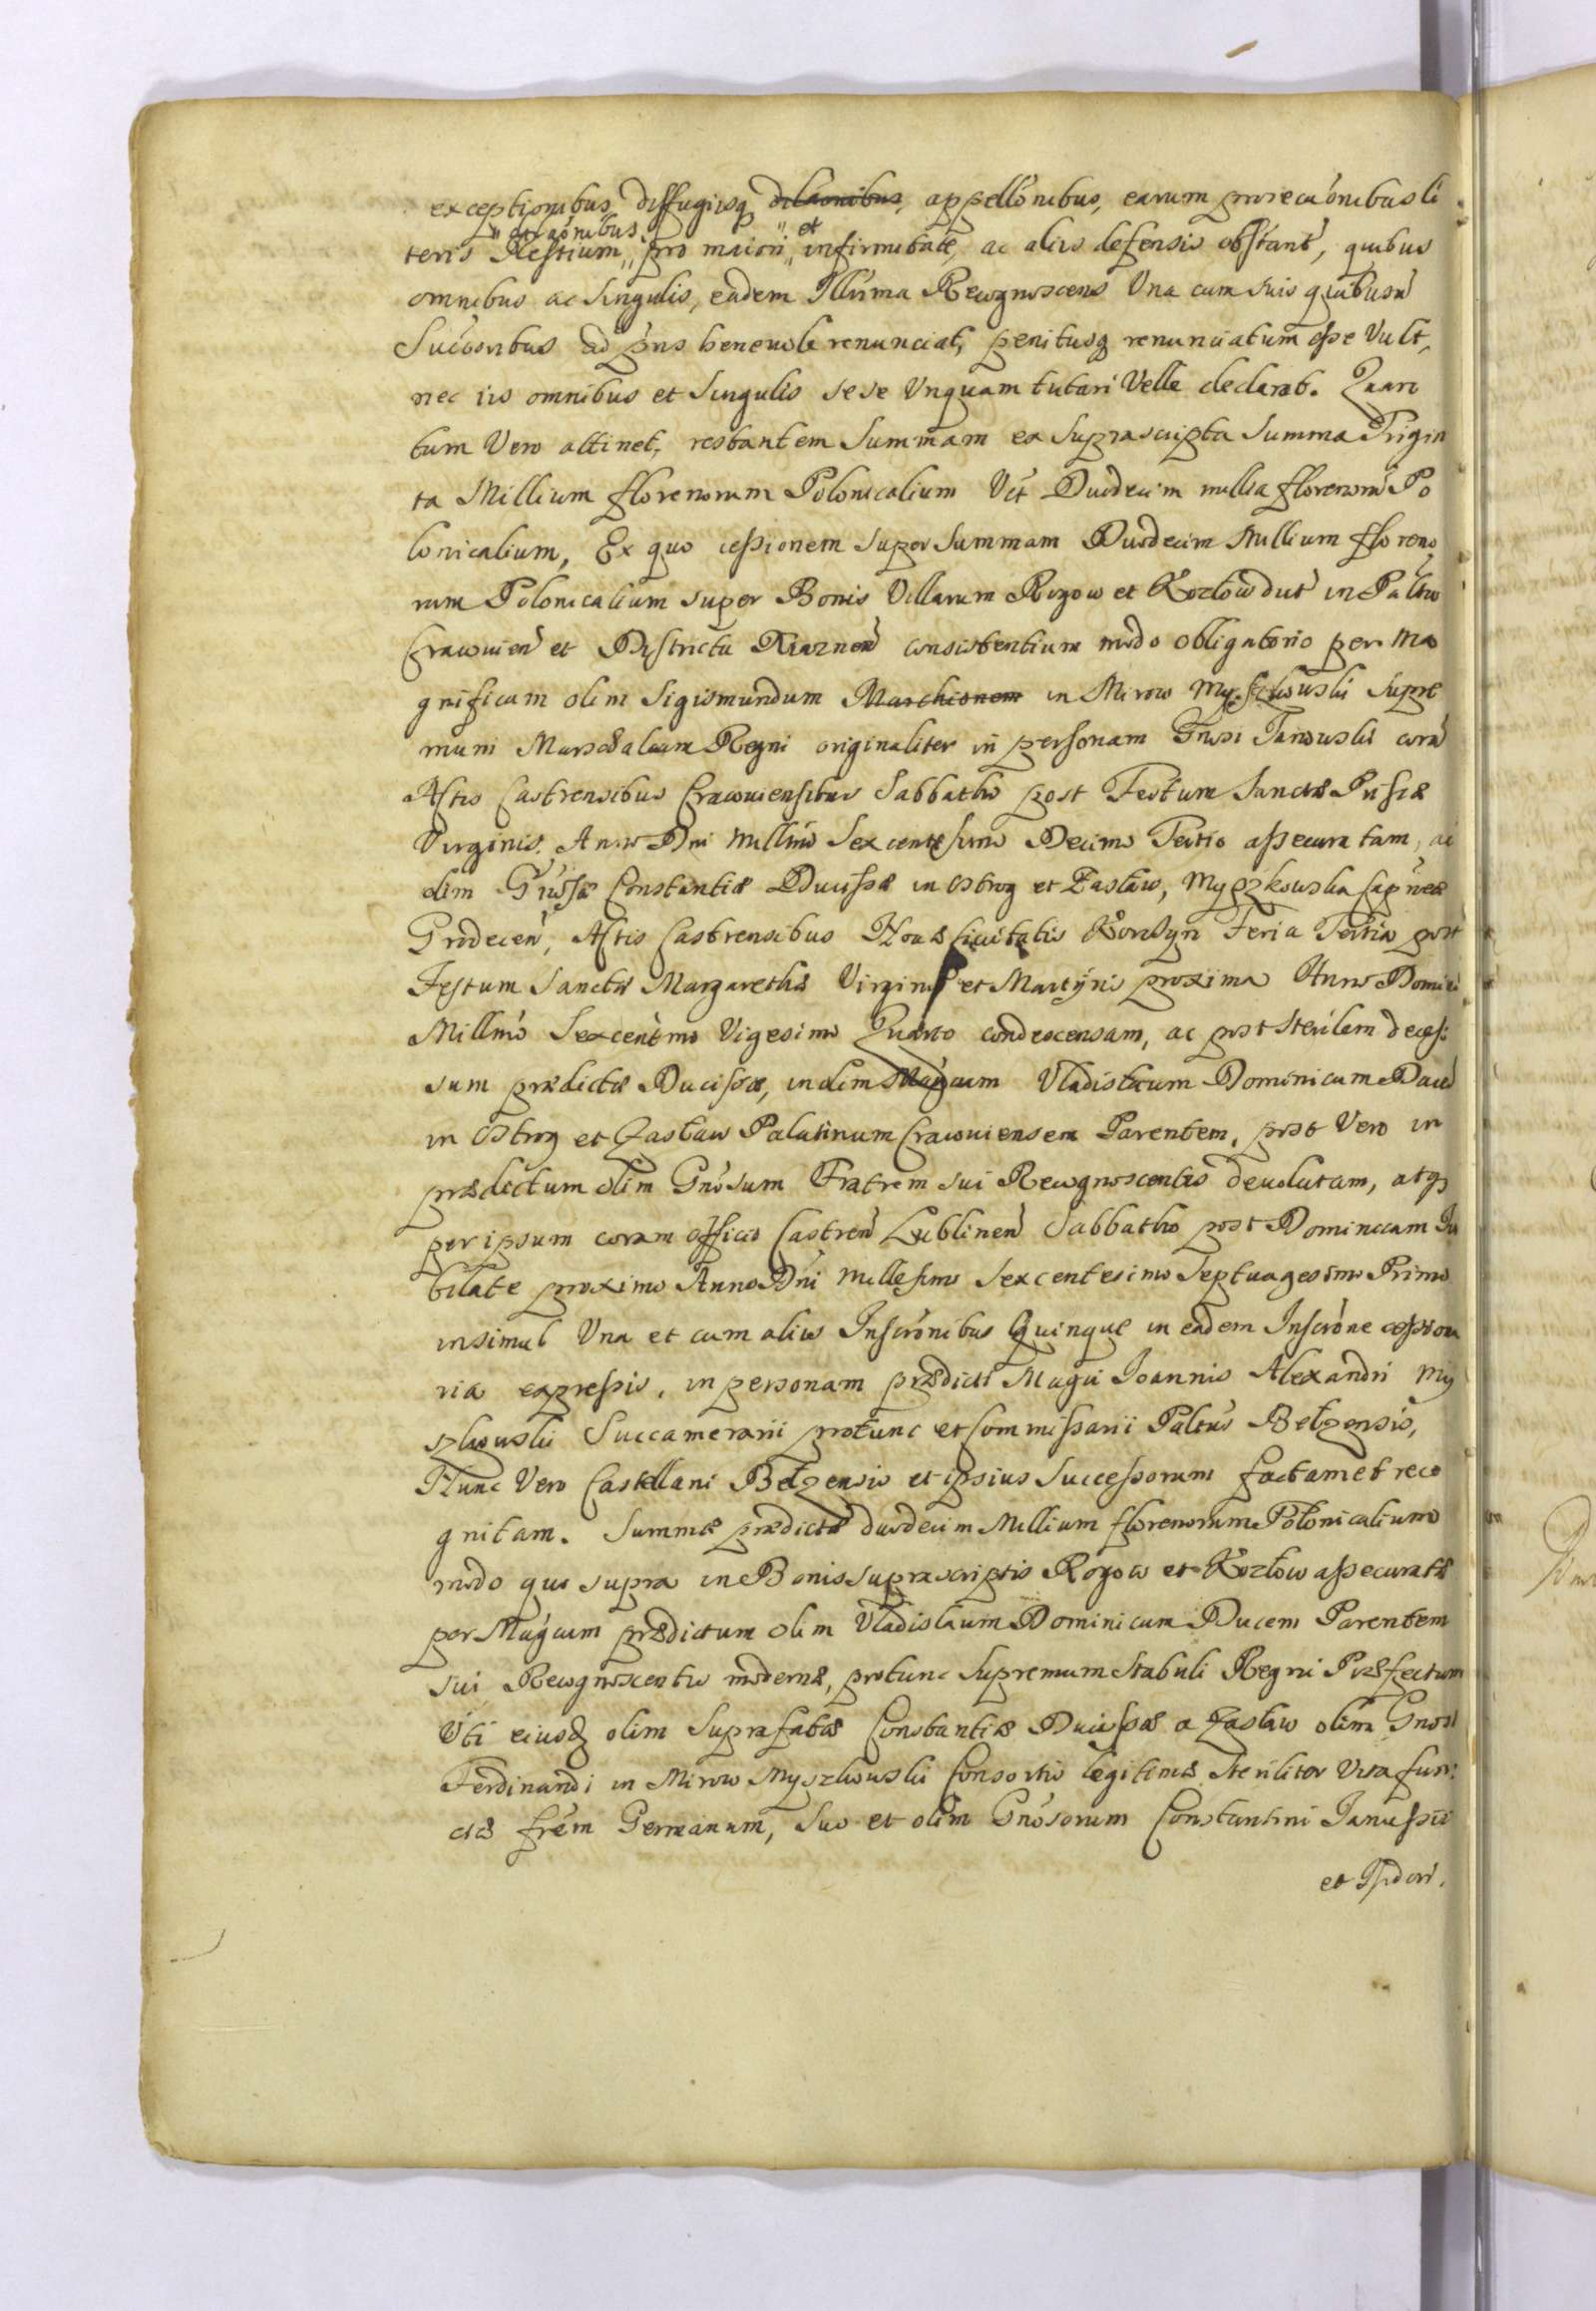 exceptionibus, diffugijsq dilãonibus, appellõnibus, earum prosecuõnibus li
dilãonibus et
teris Restium pro maiori infirmitate, ac alijs defensis obstant, quibus
omnibus ac singulis, eadem Illũma Recognoscens Una cum suis quibusũ
Succõribus ad pñs beneuole renunciat, penitusq renunciatum esse Vult,
nec iis omnibus et singulis sese Unquam tutari Velle declarat. Quan
tum Vero attinet, restantem Summam ex suprascripta Summa Trigin
ta Millium florenorum Polonicalium Uct Duodecim millia florenorũ Po
lonicalium, Ex quo cessionem super Summam Duodecim Millium floreno
rum Polonicalium super Bonis Villarum Rozow et Kozlow dict in Paltũ
Cracouieñ et Districtu Xiazneñ consistentium modo obligatorio per Ma
gnificum olim Sigismundum Marchionem in Mirow Myszkouski Supre
mum Marschalcum Regni originaliter in personam Gnõsi Tarnouski corã
Actis Castrensibus Cracouiensibus Sabbatho post Festum Sanctæ Priscæ
Virginis. Anno Dni Millmo Sexcentesimo Decimo Tertio assecuratam, ac
olim Gnõsæ Constantiæ Ducissæ in Ostrog et Zaslaw, Myszkowska Capneæ
Grodeceñ, Actis Castrensibus Nouæ Ciuitatis Korczyn Feria Tertia post
Festum Sanctæ Margarethæ Virginis et Martyris proxima Anno Domini
Millmo Sexcentmo Vigesimo Quarto condescensam, ac post sterilem deces
sum prædictæ Ducissæ, in olim Magcum Vladislaum Dominicum Ducẽ
in Ostrog et Zaslaw Palatinum Cracouiensem Parentem, post Vero in
prædictum olim Gnõsum Fratrem sui Recognoscentis deuolutam, atq
per ipsum coram officio Castreñ Lublineñ Sabbatho post Dominicam Iu
bilate proximo Anno Dñi Millesimo Sexcentesimo Septuagesimo Primo
insimul Una et cum alijs Inscrõnibus Quinque in eadem Inscrõne cessiona
ria expressis, in personam prædicti Magci Joannis Alexandri My
szkouski Succamerarii protunc et Commissarii Paltũs Belzensis,
Nunc Vero Castellani Belzensis et ipsius Successorum factam et reco
gnitam. Summæ prædictæ duodecim Millium florenorum Polonicalium
modo quo supra in Bonis suprascriptis Rozow et Kozlow assecuratæ
per Magcum prædictum olim Vladislaum Dominicum Ducem Parentem
sui Recognoscentis modernæ, protunc Supremum Stabuli Regni Præfectum
Uti eiusd olim Suprafatæ Constantiæ Ducissæ a Zaslaw olim Gnosi
Ferdinandi in Mirow Myszkouski Consortis legitimæ steriliter Vita fun
ctæ frẽm Germanum, Suo et olim Gnõsorum Constantini Janussii
et Isidori.